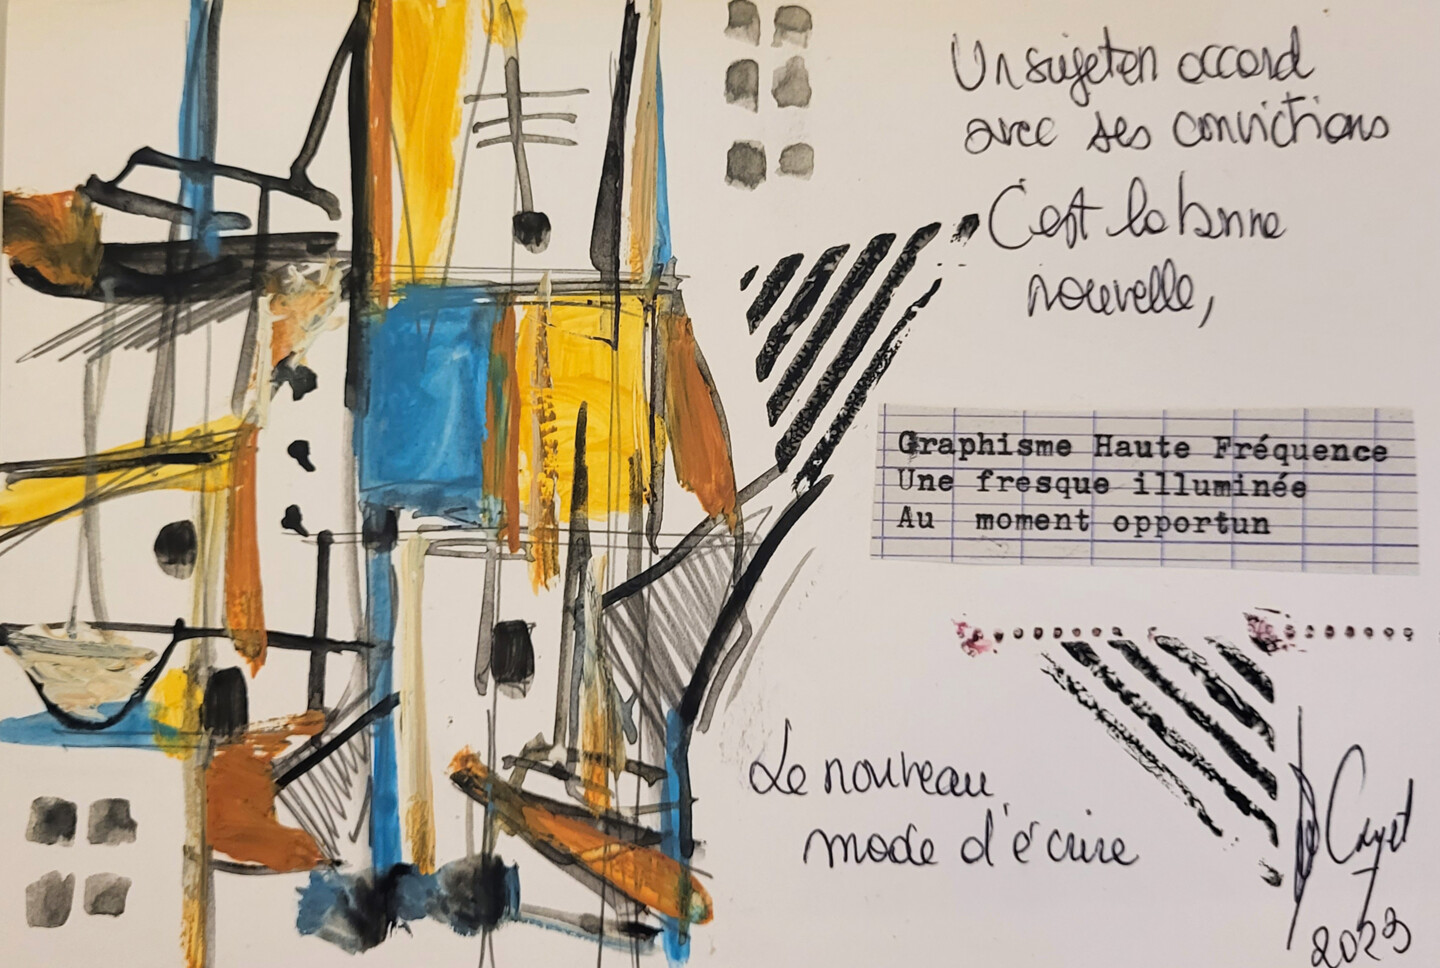 Un sujet en accord
avec ses convictions
C'est la bonne
nouvelle,
Graphisme Haute Fréquence
Une fresque illuminée
Au moment opportun
Le nouveau
mode d'écrire
2023